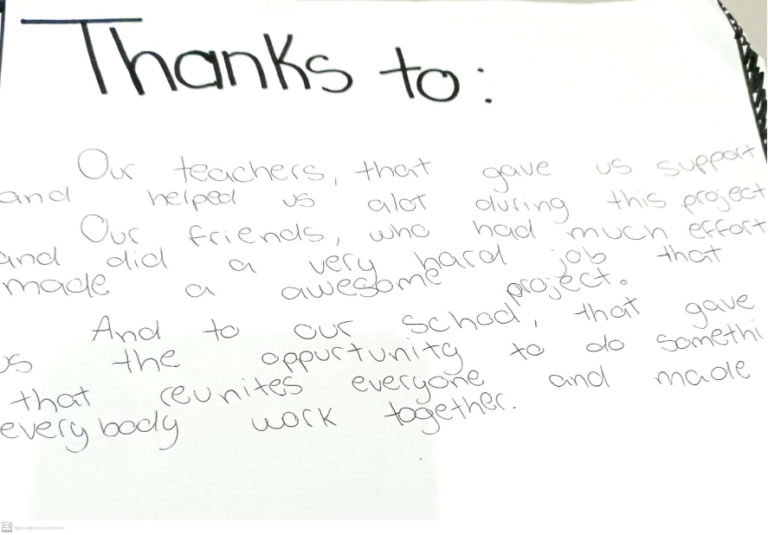 Thanks to:
Our teachers, that gave us support
and helped us alot during this project
Our friends, who had much effort
and did a very hard job that
made a awesome project.
And to our school, that gave
us the oppurtunity to do somethi
that reunites everyone and made
everybody work together.